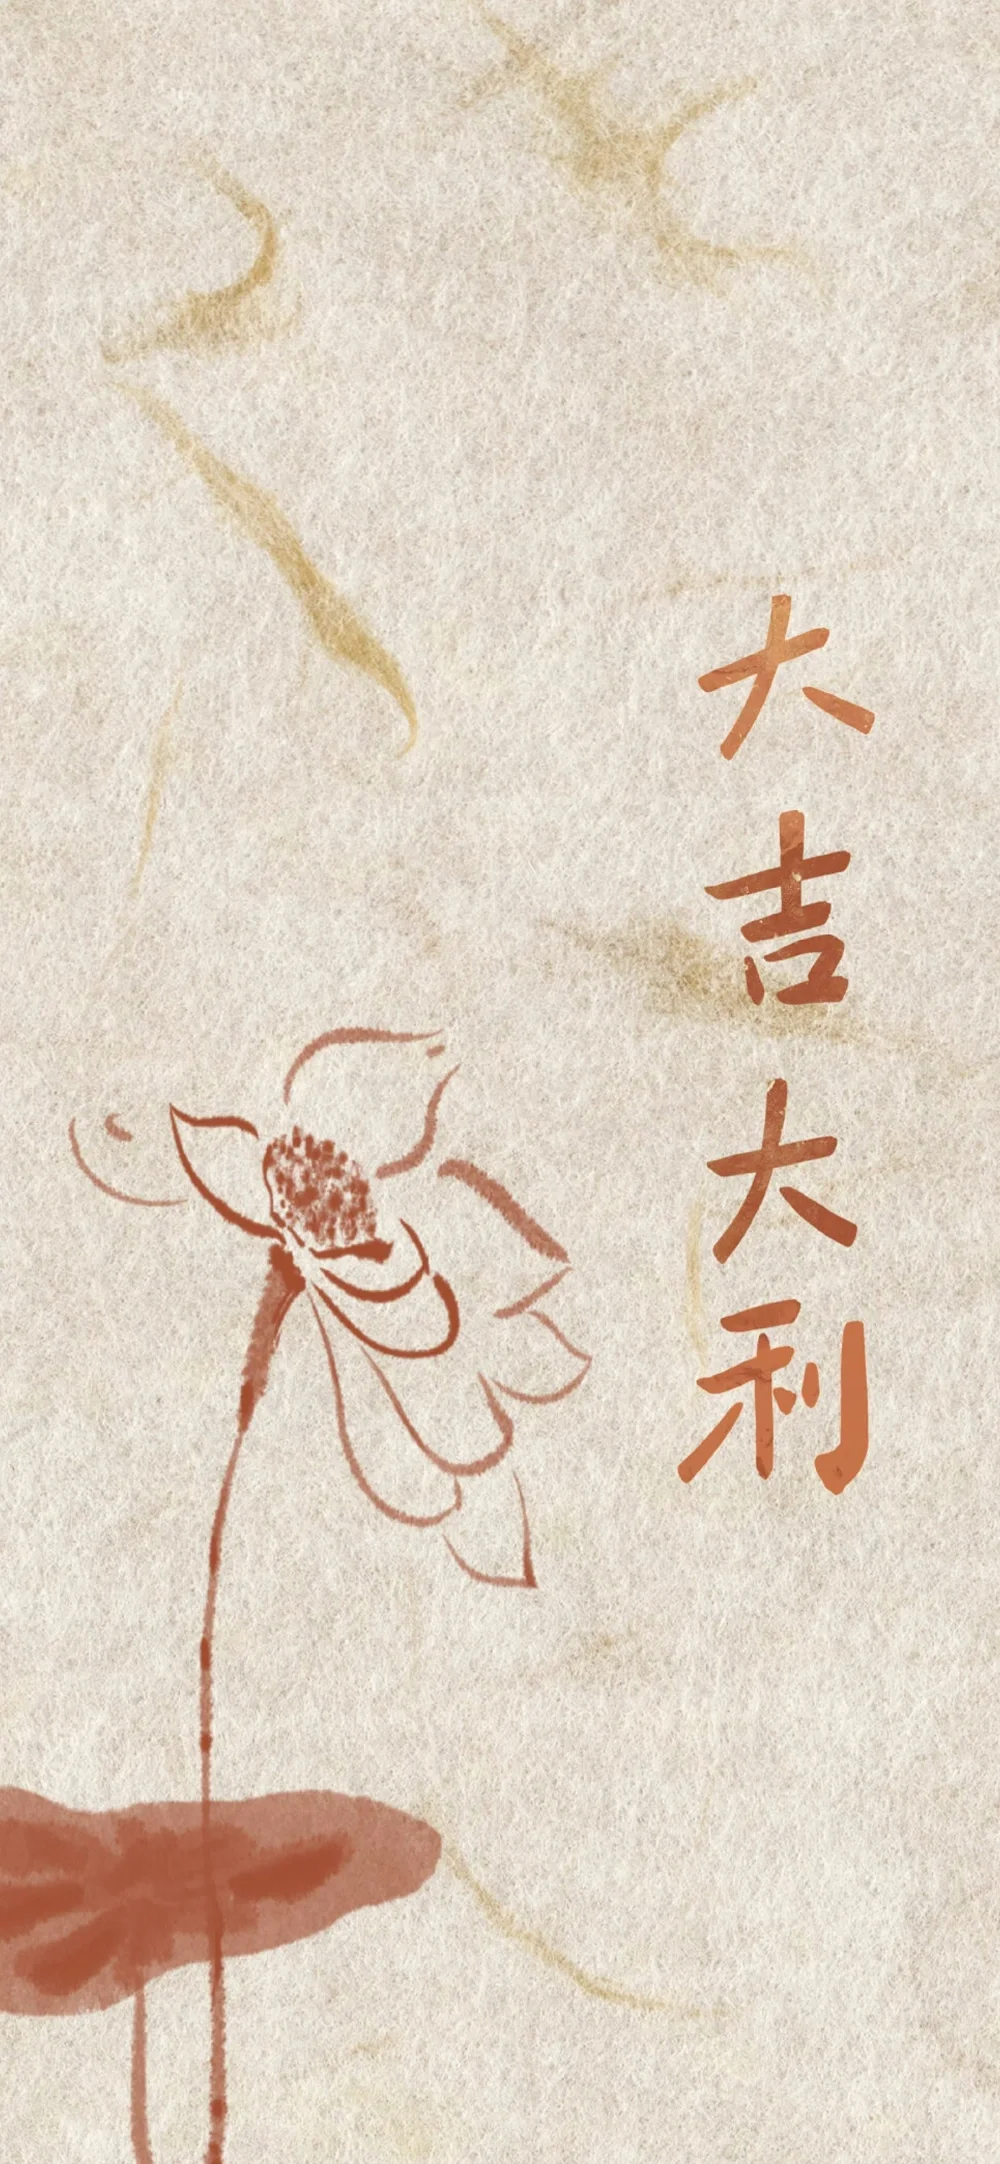 大吉大利